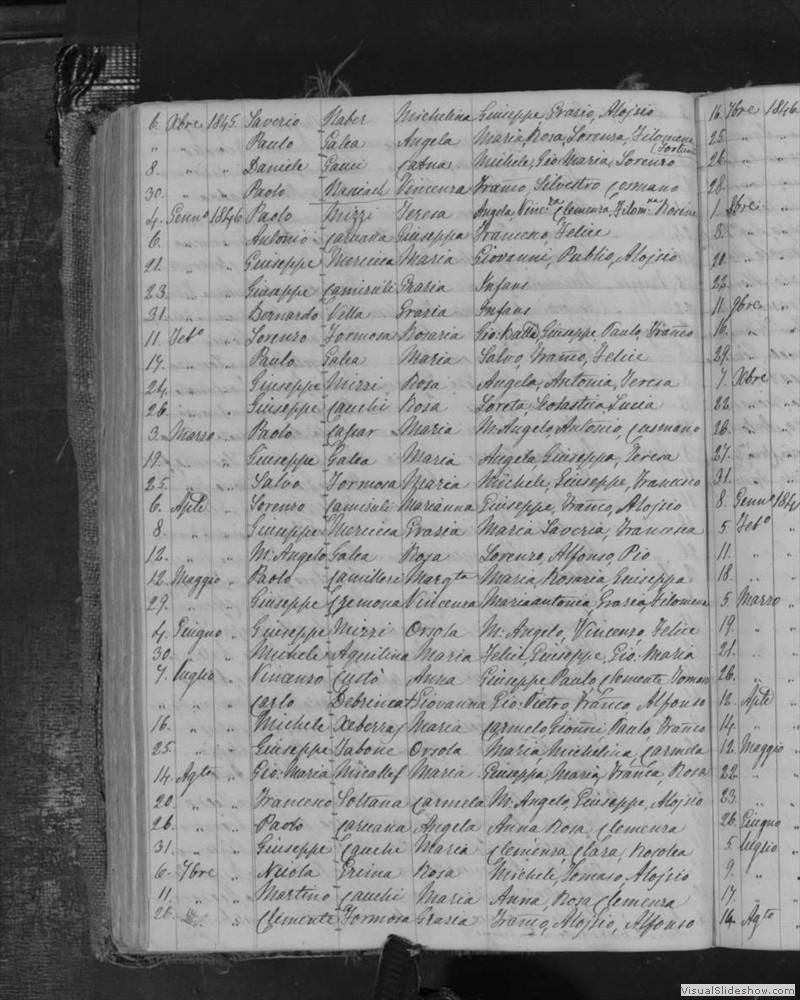 6. Xbre 1845 Saverio Xabir Michelina Giuseppe, Grazio, Alojsio
" " " Paulo Galea Angela Maria, Rosa, Lorenza, Filomena
(Fortuna
8. " " Daniele Gauci Catna Michele, Gio Maria, Lorenzo
30. " " Paolo Vincenza Franco, Silvestro Cosmano
4. Genno 1846 Paolo Mizzi Teresa Angela, Vincza Clemenza, Filomna Rosina
6. " " Antonio Caruana Giuseppa Francesco, Felice
21. " " Giuseppe Mericica Maria Giovanni, Publio, Alojsio
23. " " Giuseppe Camisuli Grazia Infans
31. " " Bernardo Villa Grazia Infans
11. Febo " Lorenzo Formosa Rosaria Gio: Batta, Giuseppe, Paulo, Franco
17. " " Paulo Galea Maria Salvo, Franco, Felice
24. " " Giuseppe Mizzi Rosa Angela, Antonia, Teresa
26. " " Giuseppe Cauchi Rosa Loreta, Scolastica, Lucia
3. Marzo " Paolo Caspar Maria M. Angelo, Antonio, Cosmano
19. " " Giuseppe Galea Maria Angela, Giuseppa, Teresa
25. " " Salvo Formosa Maria Michele, Giuseppe, Francesco
6. Aple " Lorenzo Camisuli Marianna Giuseppe, Franco, Alojsio
8. " " Giuseppe Mericica Grazia Maria Saveria, Francesca
12. " " M. Angelo Galea Rosa Lorenzo, Alfonso, Pio
12. Maggio " Paolo Camilleri Margta Maria, Rosaria, Giuseppa
29. " " Giuseppe Cremona Vincenza Mariaantonia, Grazia, Filomena
4. Giugno " Giuseppe Mizzi Orsola M. Angelo, Vincenzo, Felice
30. " " Michele Aquilina Maria Felice, Giuseppe, Gio. Maria
7. Luglio " Vincenzo Custò Anna Giuseppe Paulo, Clemente, Tomaso
" " " Carlo Debrincat Giovanna Gio. Pietro, Franco, Alfonso
16. " " Michele Xeberras Maria Carmelo Gionni Paulo, Franco
25. " " Giuseppe Sabone Orsola Maria Michelina, Carmela
14. Agto " Gio. Maria Micallef Maria Giuseppa, Maria, Franca, Rosa
20. " " Francesco Soltana Carmela M. Angelo, Giuseppe, Alojsio
26. " " Paolo Caruana Angela Anna Rosa, Clemenza
31. " " Giuseppe Cauchi Maria Clemenza, Clara, Rosolea
6. 7bre " Nicola Grima Rosa Michele, Tomaso Alojsio
11. " " Martino Cauchi Maria Anna, Rosa, Clemenza
26. " " Clemente Formosa Grazia Franco, Alojsio, Alfonso
16. 7bre 1846
25. " "
26. " "
28. " "
1. 8bre "
3. " "
21. " "
22. " "
11. 9bre "
16. " "
29. " "
7. Xbre
22. "
26. "
27. "
31. "
8. Genno 184
5. Febo
11. "
18. "
5. Marzo
19. "
21. "
26. "
12. Aple
14. "
12. Maggio
22. "
23. "
26. Giugno
5. Luglio
9. "
17. "
14. Agto
VisualSlideshow.com